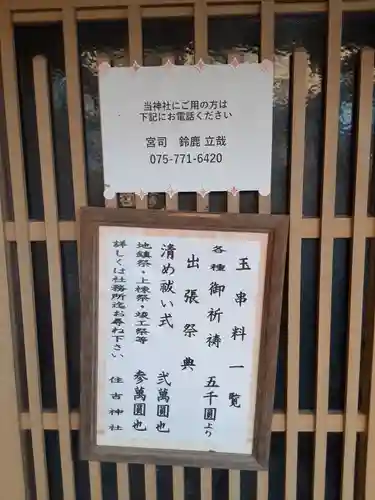 当神社にご用の方は
下記にお電話ください
宮司 鈴鹿 立哉
075-771-6420
玉串料一覧
各種御祈祷 五千圓より
出張祭典
清め祓い式 弐萬圓也
地鎮祭・上棟祭・竣工祭等 参萬圓也
詳しくは社務所迄お尋ね下さい 住吉神社